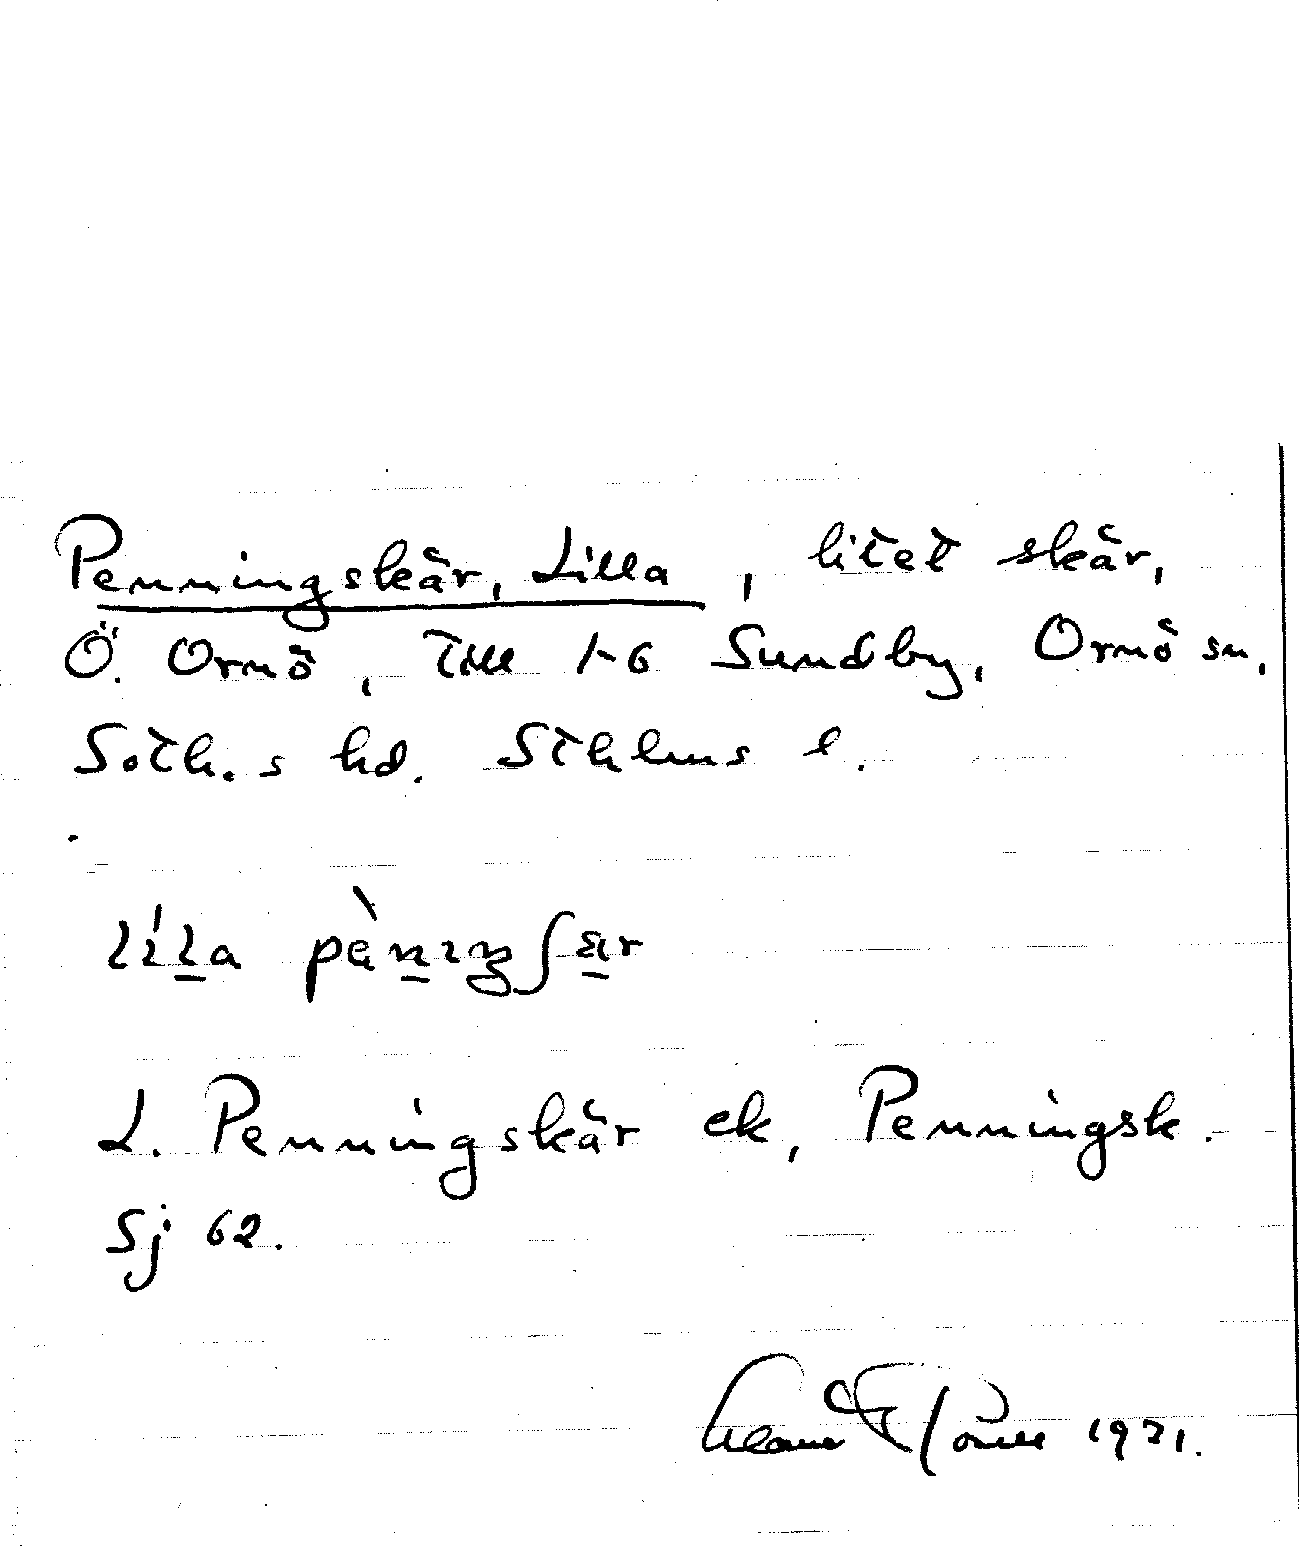 Penningskär, Lilla, litet skär,
Ö. Ornö, till 1-6 Sundby, Ornö sn,
Soth.s hd. Sthlms l.
lílla pènɪŋʃär
L. Penningskär ek, Penningsk.
Sj 62.
1971.